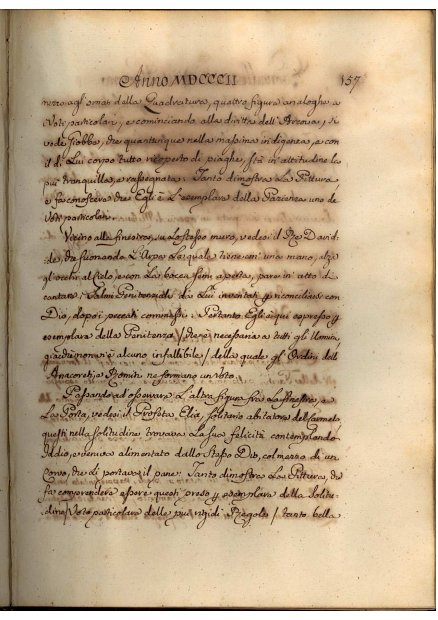 Anno MDCCCII 157
mezzo agl'ornati della Quadratura, quattro figure analoghe a
Voti particolari, e cominciando alla diritta dell'Arconia, si
vede Giobbe, che quantunque nella massima indigenza, e con
il di Lui corpo tutto ricoperto di piaghe, stà in attitudine la
più tranquilla, e rassegnata. Tanto dimostra La Pittura
e fa conoscere che Egli è L'esemplare della Pazienza uno de
Voti particolari.
Vicino alla finestra, su Lo stesso muro, vedesi il Rè David:
:de, che suonando L'Arpa La quale tiene con una mano, alza
gl'occhi al Cielo, e con La bocca semi aperta, pare in atto di
cantare i Salmi Penitenziali da Lui inventati p riconciliarsi con
Dio, dopo i peccati commessi: Pertanto Egli è qui espresso p
esemplare della Penitenza / che è necessaria a tutti gli Uomini,
giacchè non v'è alcuno infallibile / della quale gl'Ordini dell'
Anacoreti, e Romiti ne formano un Voto.
Passando ad osservare L'altra figura fra La finestra, e
La Porta, vedesi il Profeta Elia, solitario abitatore del Carmelo
questi nella solitudine trovava La sua felicità contemplando
Iddio, e veniva alimentato dallo stesso Dio, col mezzo di un
Corvo, che Li portava il pane. Tanto dimostra La Pittura, che
fa comprendere essere questi preso p esemplare della Solitu:
:dine / Voto particolare delle più rigidi Regole / tanto bella